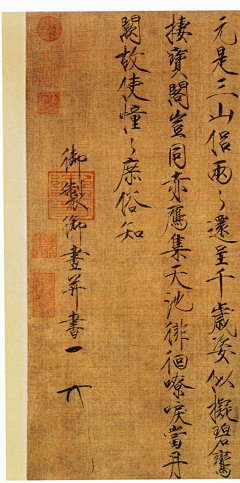 元是三山侣兩〻還呈千歲姿似擬碧鸞
棲寶閣豈同赤鴈集天池徘徊嘹唳當丹
闕故使憧〻庶俗知
御製御畫并書